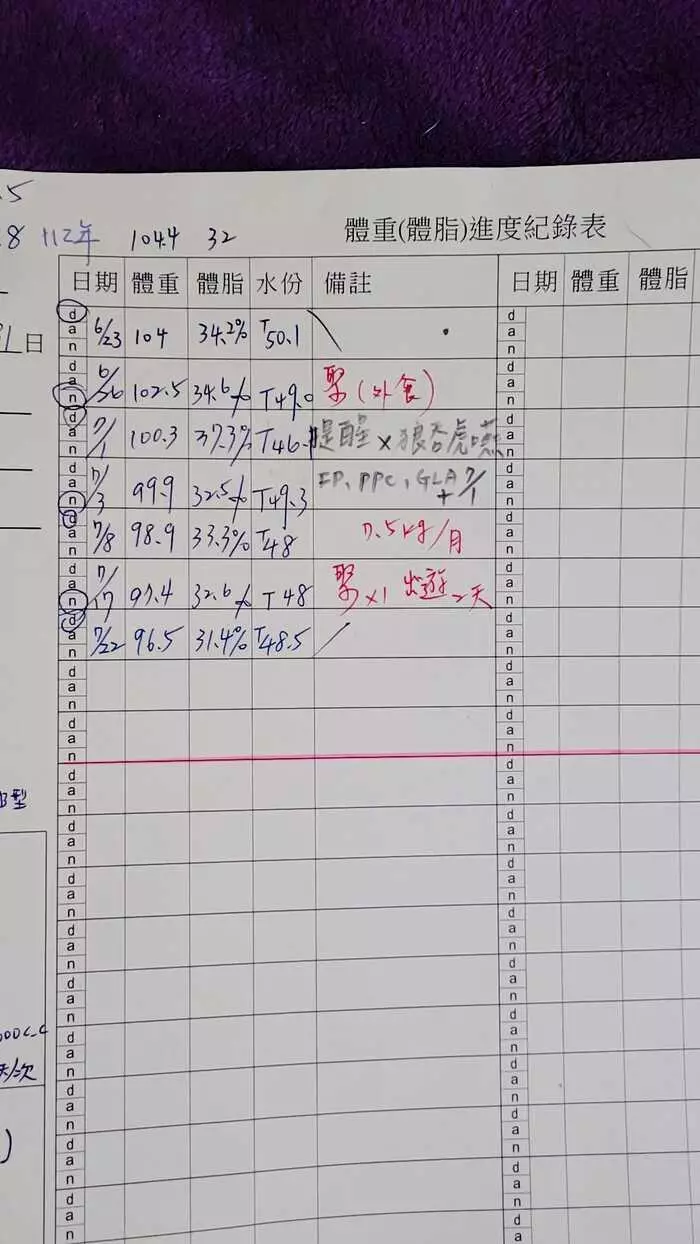 .5
.8 112年 104.4 32 體重(體脂)進度紀錄表
日期 體重 體脂 水份 備註 日期 體重 體脂
日
d a n 6/23 104 34.2% T50.1 d a n
d a n 6/26 102.5 34.6% T49.0 聚(外食) d a n
d a n 7/1 100.3 37.3% T46. 提醒×狼吞虎嚥 d a n
d a n 7/3 99.9 32.5% T49.3 EP、PPC、GLA + 7/1 d a n
d a n 7/8 98.9 33.3% T48 7.5kg/月 d a n
d a n 7/17 97.4 32.6% T48 聚×1 出遊2天 d a n
d a n 7/22 96.5 31.4% T48.5 d a n
d a n d a n
d a n d a n
d a n d a n
型
d a n d a n
d a n d a n
d a n d a n
d a n d a n
d a n d a n
000c.c
次
d a n d a n
d a n d a n
)
d a n d a n
d a n d a